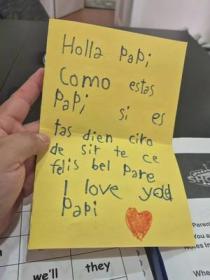 Holla Papi
Como estas
Papi, si es
tas dien ciro
de sir te ce
felis bel Pare
I love you
Papi
we'll they